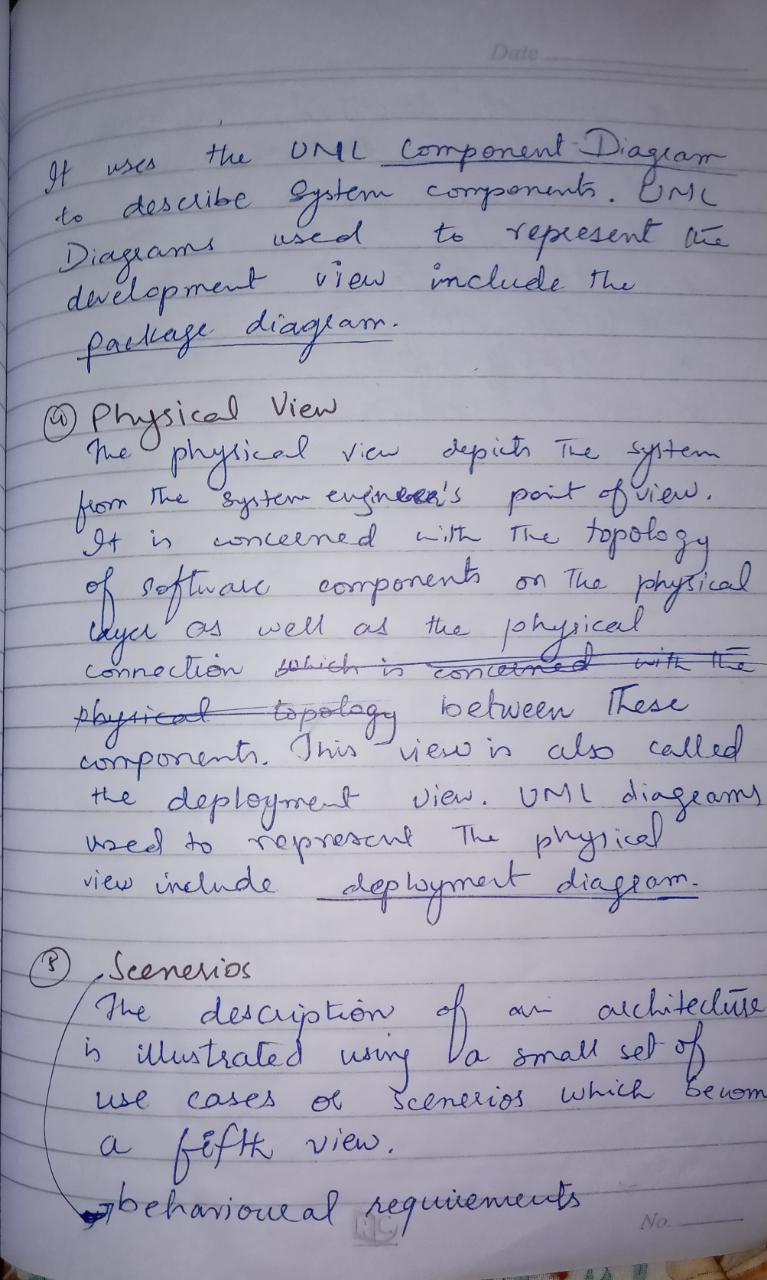 Date
It uses the UML Component Diagram
to describe System components. UML
Diagrams used to represent the
development view include the
package diagram.
(4) Physical View
The physical view depicts The system
from The system engineer's point of view.
It is concerned with The topology
of software components on The physical
layer as well as the physical
connection which is concerned with the
physical topology between These
components. This view is also called
the deployment view. UML diagrams
used to represent The physical
view include deployment diagram.
(5) Scenerios
The description of an architecture
is illustrated using a small set of
use cases or scenerios which becom
a fifth view.
behavioural requirements
No.